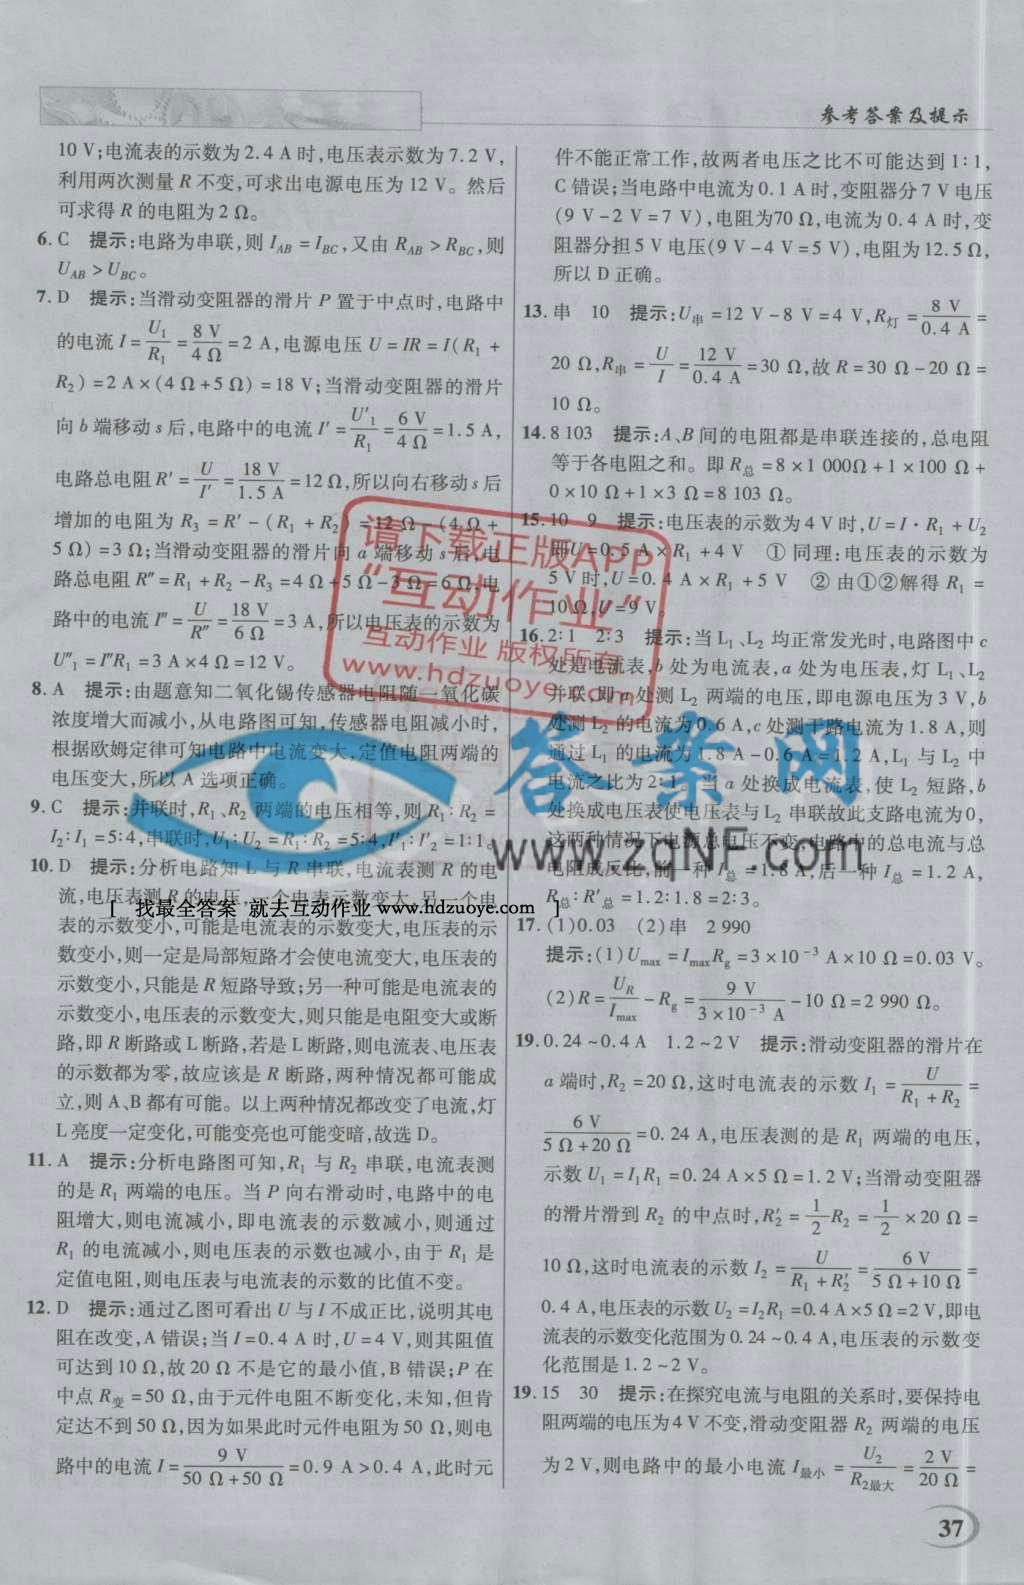 参考答案及提示
10 V;电流表的示数为2.4 A时,电压表示数为7.2 V,
利用两次测量R不变,可求出电源电压为12 V。然后
可求得R的电阻为2 Ω。
6. C 提示:电路为串联,则I_AB=I_BC,又由R_AB>R_BC,则
U_AB>U_BC。
7. D 提示:当滑动变阻器的滑片P置于中点时,电路中
的电流I=U₁/R₁=8 V/4 Ω=2 A,电源电压U=IR=I(R₁+
R₂)=2 A×(4 Ω+5 Ω)=18 V;当滑动变阻器的滑片
向b端移动s后,电路中的电流I′=U′₁/R₁=6 V/4 Ω=1.5 A,
电路总电阻R′=U/I′=18 V/1.5 A=12 Ω,所以向右移动s后
增加的电阻为R₃=R′-(R₁+R₂)=12 Ω-(4 Ω+
5 Ω)=3 Ω;当滑动变阻器的滑片向a端移动s后,电
路总电阻R″=R₁+R₂-R₃=4 Ω+5 Ω-3 Ω=6 Ω,电
路中的电流I″=U/R″=18 V/6 Ω=3 A,所以电压表的示数为
U″₁=I″R₁=3 A×4 Ω=12 V。
8. A 提示:由题意知二氧化锡传感器电阻随一氧化碳
浓度增大而减小,从电路图可知,传感器电阻减小时,
根据欧姆定律可知电路中电流变大,定值电阻两端的
电压变大,所以A选项正确。
9. C 提示:并联时,R₁、R₂两端的电压相等,则R₁∶R₂=
I₂∶I₁=5∶4,串联时,U₁∶U₂=R₁∶R₂=5∶4,I′₁∶I′₂=1∶1。
10. D 提示:分析电路知L与R串联,电流表测R的电
流,电压表测R的电压,一个电表示数变大,另一个电
表的示数变小,可能是电流表的示数变大,电压表的示
数变小,则一定是局部短路才会使电流变大,电压表的
示数变小,只能是R短路导致;另一种可能是电流表的
示数变小,电压表的示数变大,则只能是电阻变大或断
路,即R断路或L断路,若是L断路,则电流表、电压表
的示数都为零,故应该是R断路,两种情况都可能成
立,则A、B都有可能。以上两种情况都改变了电流,灯
L亮度一定变化,可能变亮也可能变暗,故选D。
11. A 提示:分析电路图可知,R₁与R₂串联,电流表测
的是R₁两端的电压。当P向右滑动时,电路中的电
阻增大,则电流减小,即电流表的示数减小,则通过
R₁的电流减小,则电压表的示数也减小,由于R₁是
定值电阻,则电压表与电流表的示数的比值不变。
12. D 提示:通过乙图可看出U与I不成正比,说明其电
阻在改变,A错误;当I=0.4 A时,U=4 V,则其阻值
可达到10 Ω,故20 Ω不是它的最小值,B错误;P在
中点R变=50 Ω,由于元件电阻不断变化,未知,但肯
定达不到50 Ω,因为如果此时元件电阻为50 Ω,则电
路中的电流I=9 V/(50 Ω+50 Ω)=0.9 A>0.4 A,此时元
件不能正常工作,故两者电压之比不可能达到1∶1,
C错误;当电路中电流为0.1 A时,变阻器分7 V电压
(9 V-2 V=7 V),电阻为70 Ω,电流为0.4 A时,变
阻器分担5 V电压(9 V-4 V=5 V),电阻为12.5 Ω,
所以D正确。
13. 串 10 提示:U串=12 V-8 V=4 V,R灯=8 V/0.4 A=
20 Ω,R串=U/I=12 V/0.4 A=30 Ω,故R=30 Ω-20 Ω=
10 Ω。
14. 8 103 提示:A、B间的电阻都是串联连接的,总电阻
等于各电阻之和。即R总=8×1 000Ω+1×100 Ω+
0×10 Ω+1×3 Ω=8 103 Ω。
15. 10 9 提示:电压表的示数为4 V时,U=I·R₁+U₂
即U=0.5 A×R₁+4 V ①同理:电压表的示数为
5 V时,U=0.4 A×R₁+5 V ②由①②解得R₁=
10 Ω,U=9 V。
16. 2∶1 2∶3 提示:当L₁、L₂均正常发光时,电路图中c
处是电流表,b处为电流表,a处为电压表,灯L₁、L₂
并联,则a处测L₂两端的电压,即电源电压为3 V,b
处测L₂的电流为0.6 A,c处测干路电流为1.8 A,则
通过L₁的电流为1.8 A-0.6 A=1.2 A,L₁与L₂中
电流之比为2∶1。当a处换成电流表,使L₂短路,b
处换成电压表使电压表与L₂串联故此支路电流为0,
这两种情况下电源总电压不变,电路中的总电流与总
电阻成反比,前一种I总=1.8 A,后一种I总=1.2 A,
R总∶R′总=1.2∶1.8=2∶3。
17. (1)0.03 (2)串 2 990
提示:(1)Umax=ImaxRg=3×10⁻³ A×10 Ω=0.03 V。
(2)R=U_R/Imax-Rg=9 V/(3×10⁻³ A)-10 Ω=2 990 Ω。
19. 0.24~0.4 A 1.2~2 V 提示:滑动变阻器的滑片在
a端时,R₂=20 Ω,这时电流表的示数I₁=U/(R₁+R₂)=
6 V/(5 Ω+20 Ω)=0.24 A,电压表测的是R₁两端的电压,
示数U₁=I₁R₁=0.24 A×5 Ω=1.2 V;当滑动变阻器
的滑片滑到R₂的中点时,R₂′=1/2 R₂=1/2×20 Ω=
10 Ω,这时电流表的示数I₂=U/(R₁+R₂′)=6 V/(5 Ω+10 Ω)=
0.4 A,电压表的示数U₂=I₂R₁=0.4 A×5 Ω=2 V,即电
流表的示数变化范围为0.24~0.4 A,电压表的示数变
化范围是1.2~2 V。
19. 15 30 提示:在探究电流与电阻的关系时,要保持电
阻两端的电压为4 V不变,滑动变阻器R₂两端的电压
为2 V,则电路中的最小电流I最小=U₂/R₂最大=2 V/20 Ω=
37
请下载正版APP
“互动作业”
互动作业 版权所有
www.hdzuoye.com
答案网
www.zqNF.com
[ 找最全答案 就去互动作业 www.hdzuoye.com ]